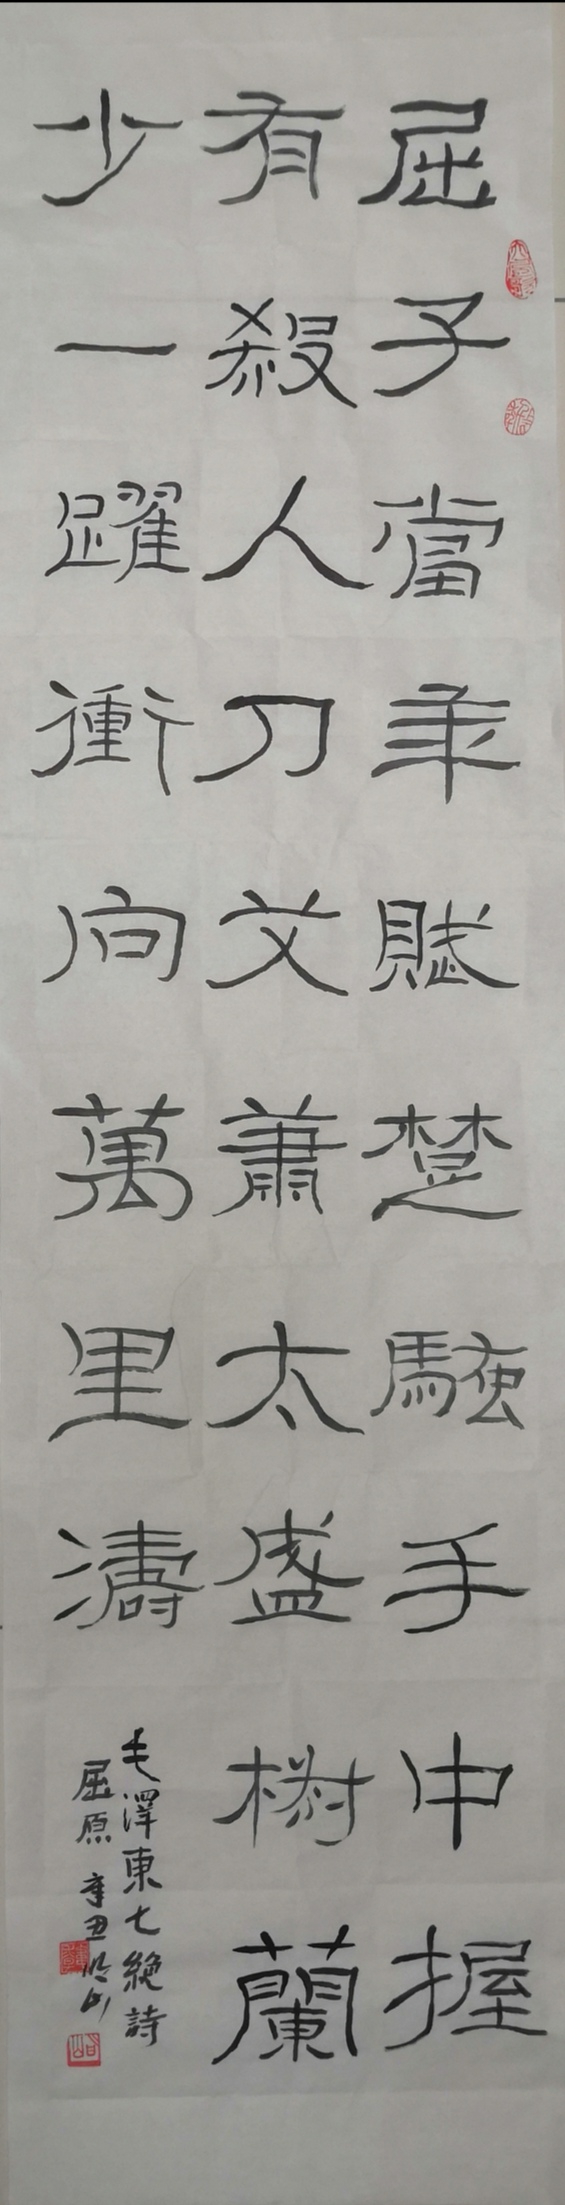 屈子當年賦楚騷手中握
有殺人刀艾蕭太盛椒蘭
少一躍衝向萬里濤
毛澤東七絶詩
屈原 辛丑